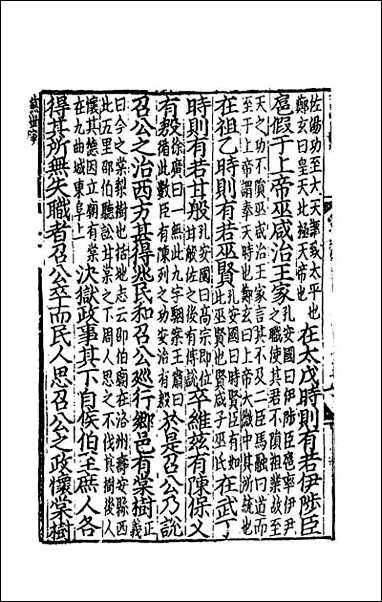 佐湯功至大天謂致太平也
鄭玄曰皇天北極天帝也
在太戊時則有若伊陟臣
扈假于上帝巫咸治王家
孔安國曰伊陟臣扈率伊尹
之職使其君不隕祖業故至
天之功不隕巫咸治王家言其不及二臣馬融曰道而
至于上帝謂奉天時也鄭玄曰上帝太微中其所統也
在祖乙時則有若巫賢
孔安國曰時賢臣有如
此巫賢也巫賢咸子巫氏
在武丁
時則有若甘般
孔安國曰高宗即位
甘般佐之後有傅說
卒維兹有陳保乂
有殷
徐廣曰一無此九字駰案王肅曰
循此數臣有陳列之功安治有殷也
於是召公乃說
召公之治西方甚得兆民和召公巡行鄉邑有棠樹
正
義
曰今之棠梨樹也括地志云召伯廟在洛州壽安縣西
北五里召伯聽訟甘棠之下周人思之不伐其樹後人
懷其德因立廟有棠
在九曲城東阜上
決獄政事其下自侯伯至庶人各
得其所無失職者召公卒而民人思召公之政懷棠樹
燕世家